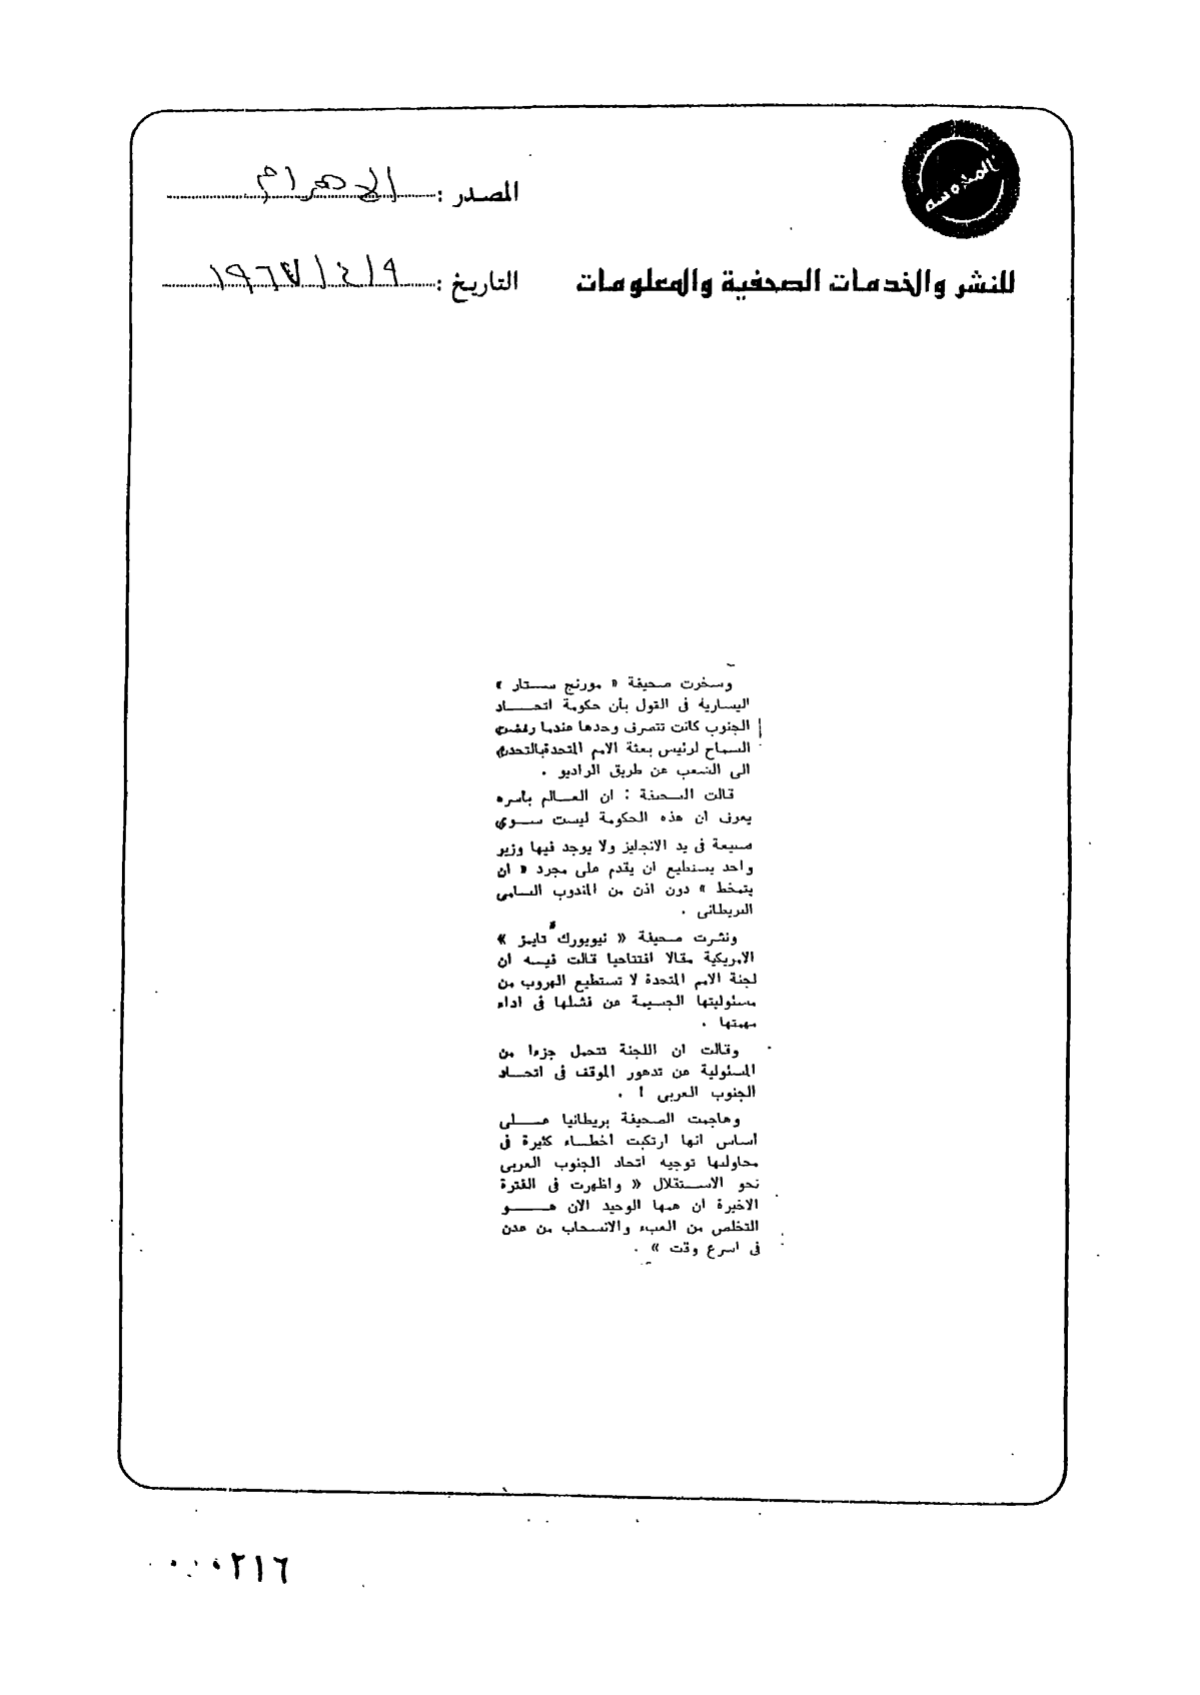 المدوسة
المصدر : الاهرام
للنشر والخدمات الصحفية والمعلومات
التاريخ : ٩/٤/١٩٦٧
وسخرت صحيفة « مورنج ستار »
اليسارية فى القول بأن حكومة اتحاد
الجنوب كانت تتصرف وحدها عندما رفضت
السماح لرئيس بعثة الامم المتحدة بالتحدث
الى الشعب عن طريق الراديو .
قالت الصحيفة : ان العالم بأسره
يعرف ان هذه الحكومة ليست سوى
فى يد الانجليز ولا يوجد فيها وزير
واحد يستطيع ان يقدم على مجرد « ان
يتمخط » دون اذن من المندوب السامى
البريطانى .
ونشرت صحيفة « نيويورك تايمز »
الامريكية مقالا افتتاحيا قالت فيه ان
لجنة الامم المتحدة لا تستطيع الهروب من
مسئوليتها الجسيمة عن فشلها فى اداء
مهمتها .
وقالت ان اللجنة تتحمل جزءا من
المسئولية عن تدهور الموقف فى اتحاد
الجنوب العربى ! .
وهاجمت الصحيفة بريطانيا على
أساس انها ارتكبت أخطاء كثيرة فى
محاولتها توجيه اتحاد الجنوب العربى
نحو الاستقلال « واظهرت فى الفترة
الاخيرة ان همها الوحيد الان هو
التخلص من العبء والانسحاب من عدن
فى اسرع وقت » .
٠٠٠٢١٦